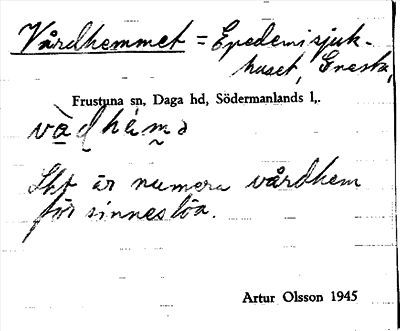 Vårdhemmet = Epedemisjuk-
huset, Gnesta,
Frustuna sn, Daga hd, Södermanlands l,.
vàḍhémə
Sht är numera vårdhem
för sinneslöa.
Artur Olsson 1945